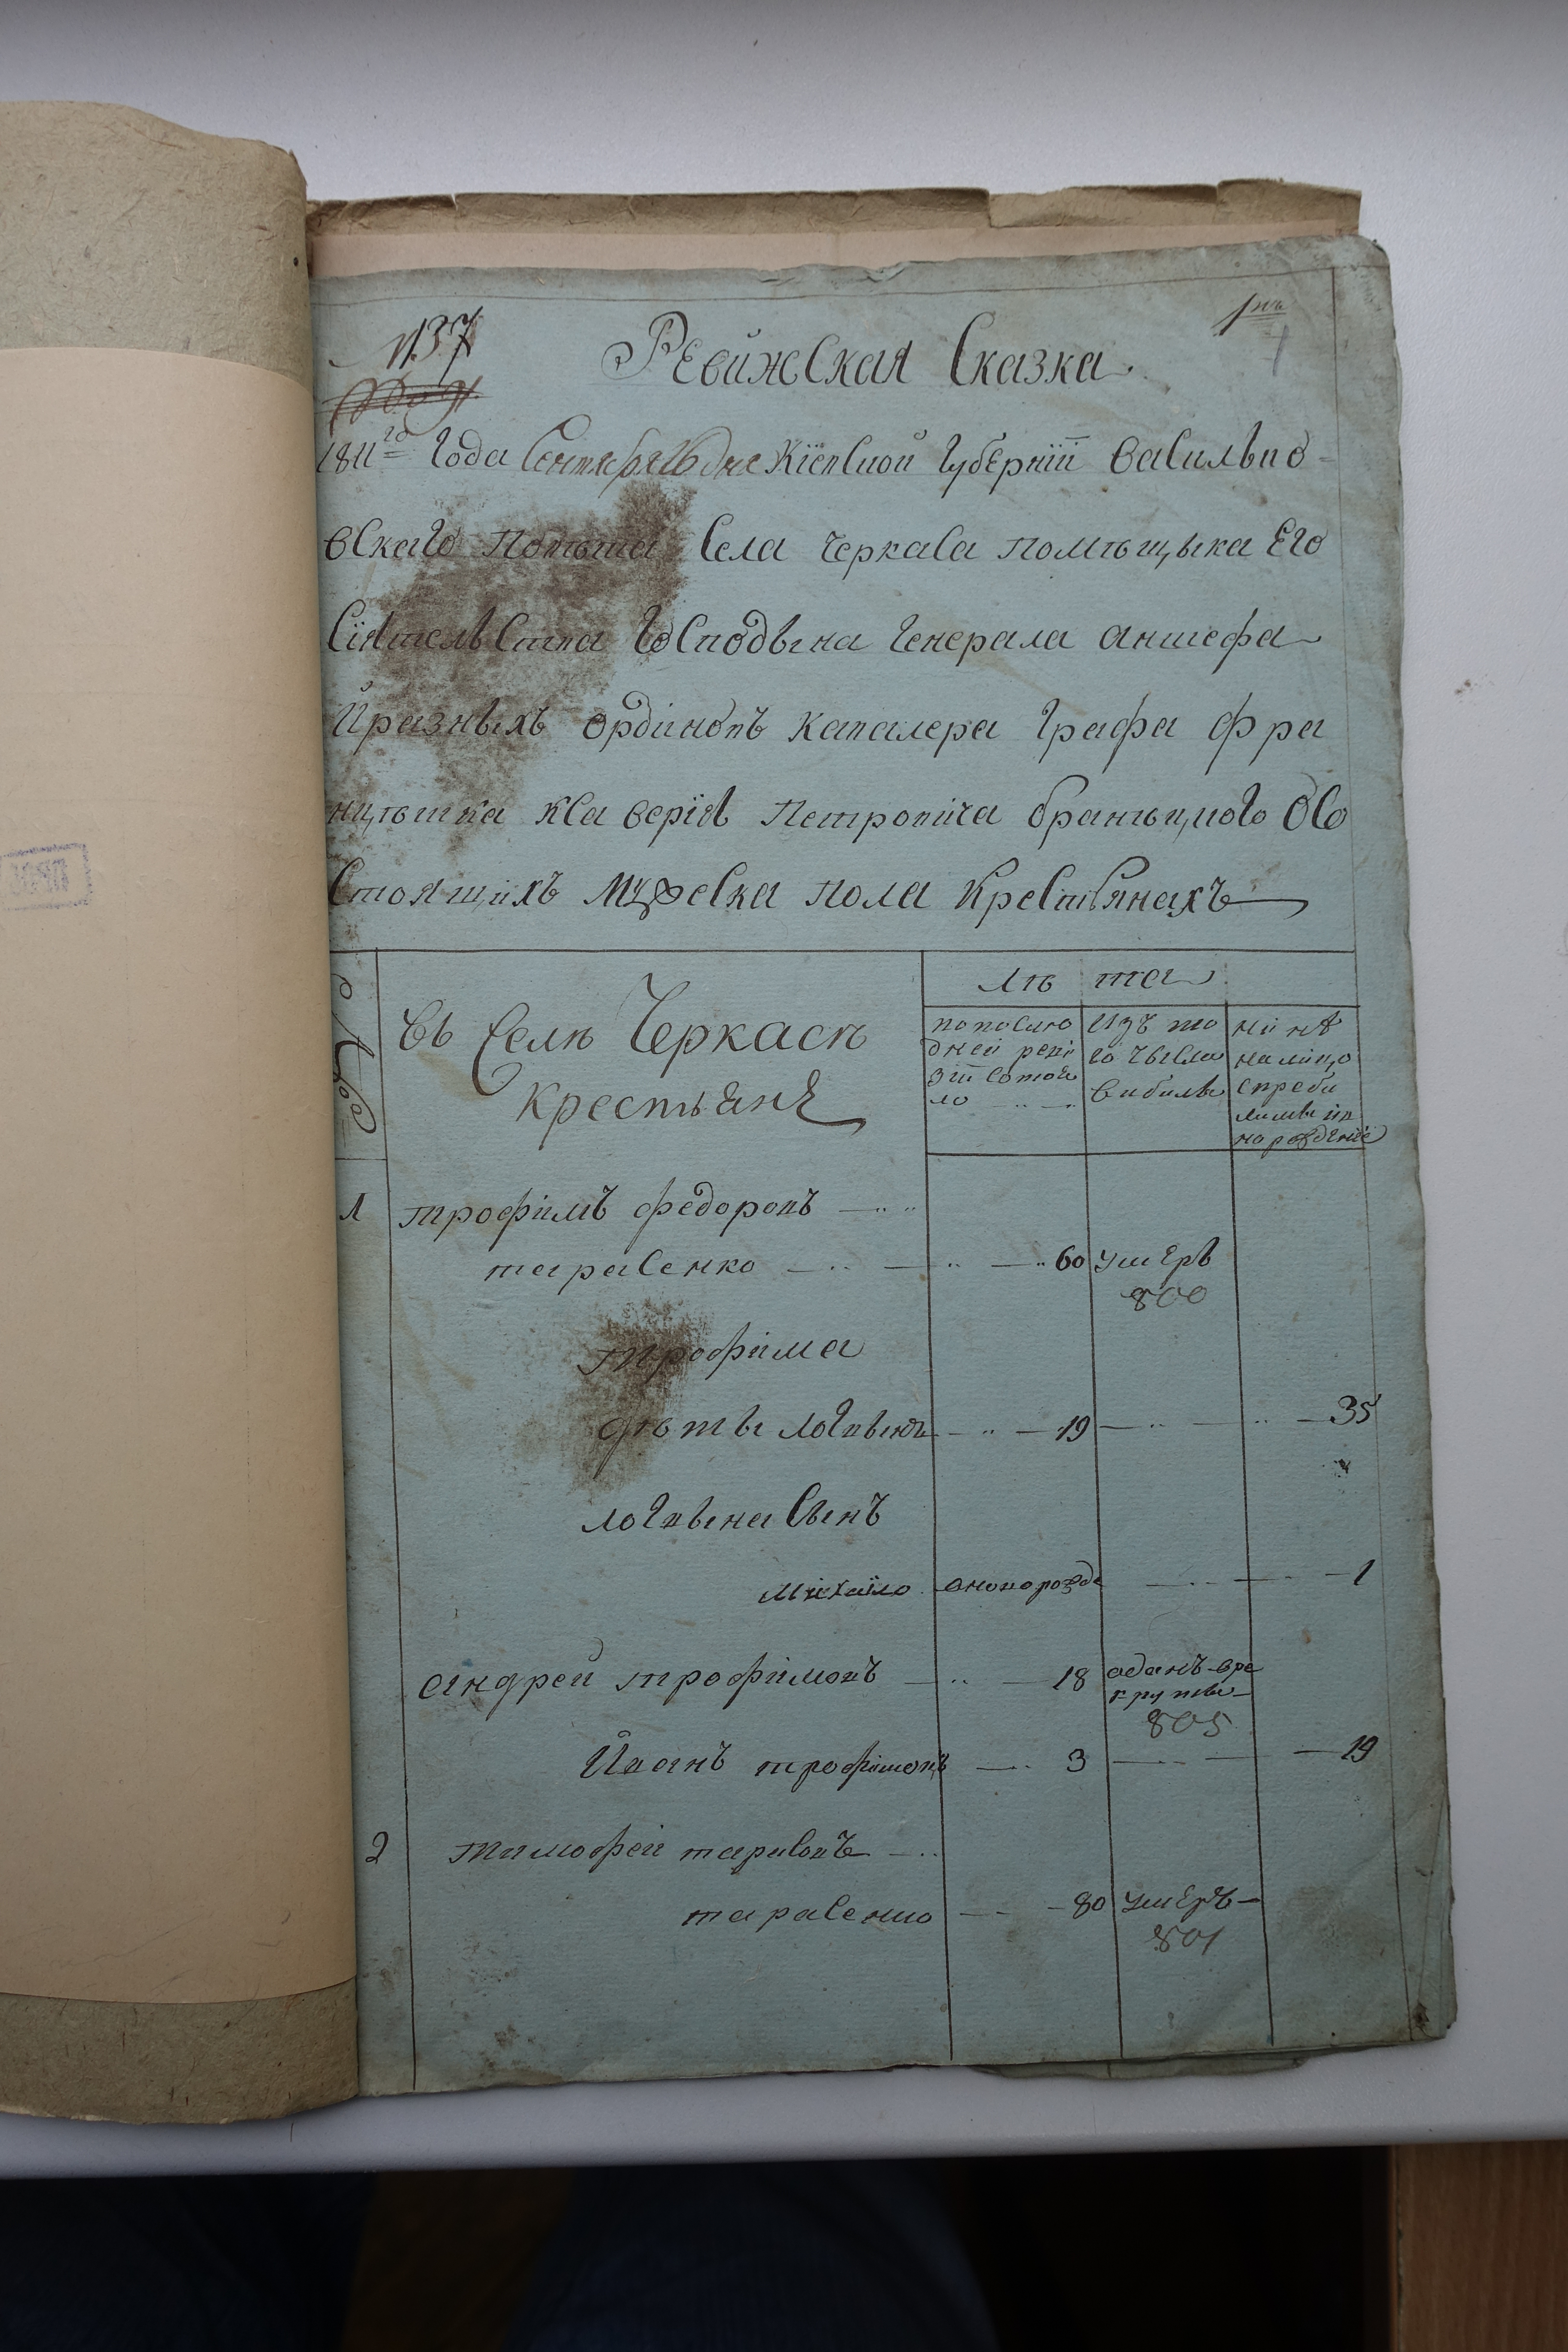 № 37
1
Ревижская Сказка
1811го года Сентября 16 дня Кіевской губерніи василько
вскаго Повѣта Села Черкаса помѣщыка Его
Сіятельства Господына генерала аншефа
й разныхъ ордіновъ кавалера графа фра
нцѣшка ксаверія Петровича бранѣцкого Осо
стоящихъ мужеска пола крестьянахъ
въ Селѣ Черкасѣ
крестьянЕ
лѣта
по послѣ
дней реви
зіи состоя
ло
изъ то
го числа
выбыли
нинѣ
налицо
1
трофімъ федоровъ
тарасенко 60 умЕръ
800
трофіма
дѣты логвынъ 19 35
логвына Сынъ
міхайло 1
андрей трофимовъ 18 аданъ вре
круты
805
Иванъ трофімовъ 3 19
2
тимофей тарасовъ
тарасенко 80 умЕръ
801